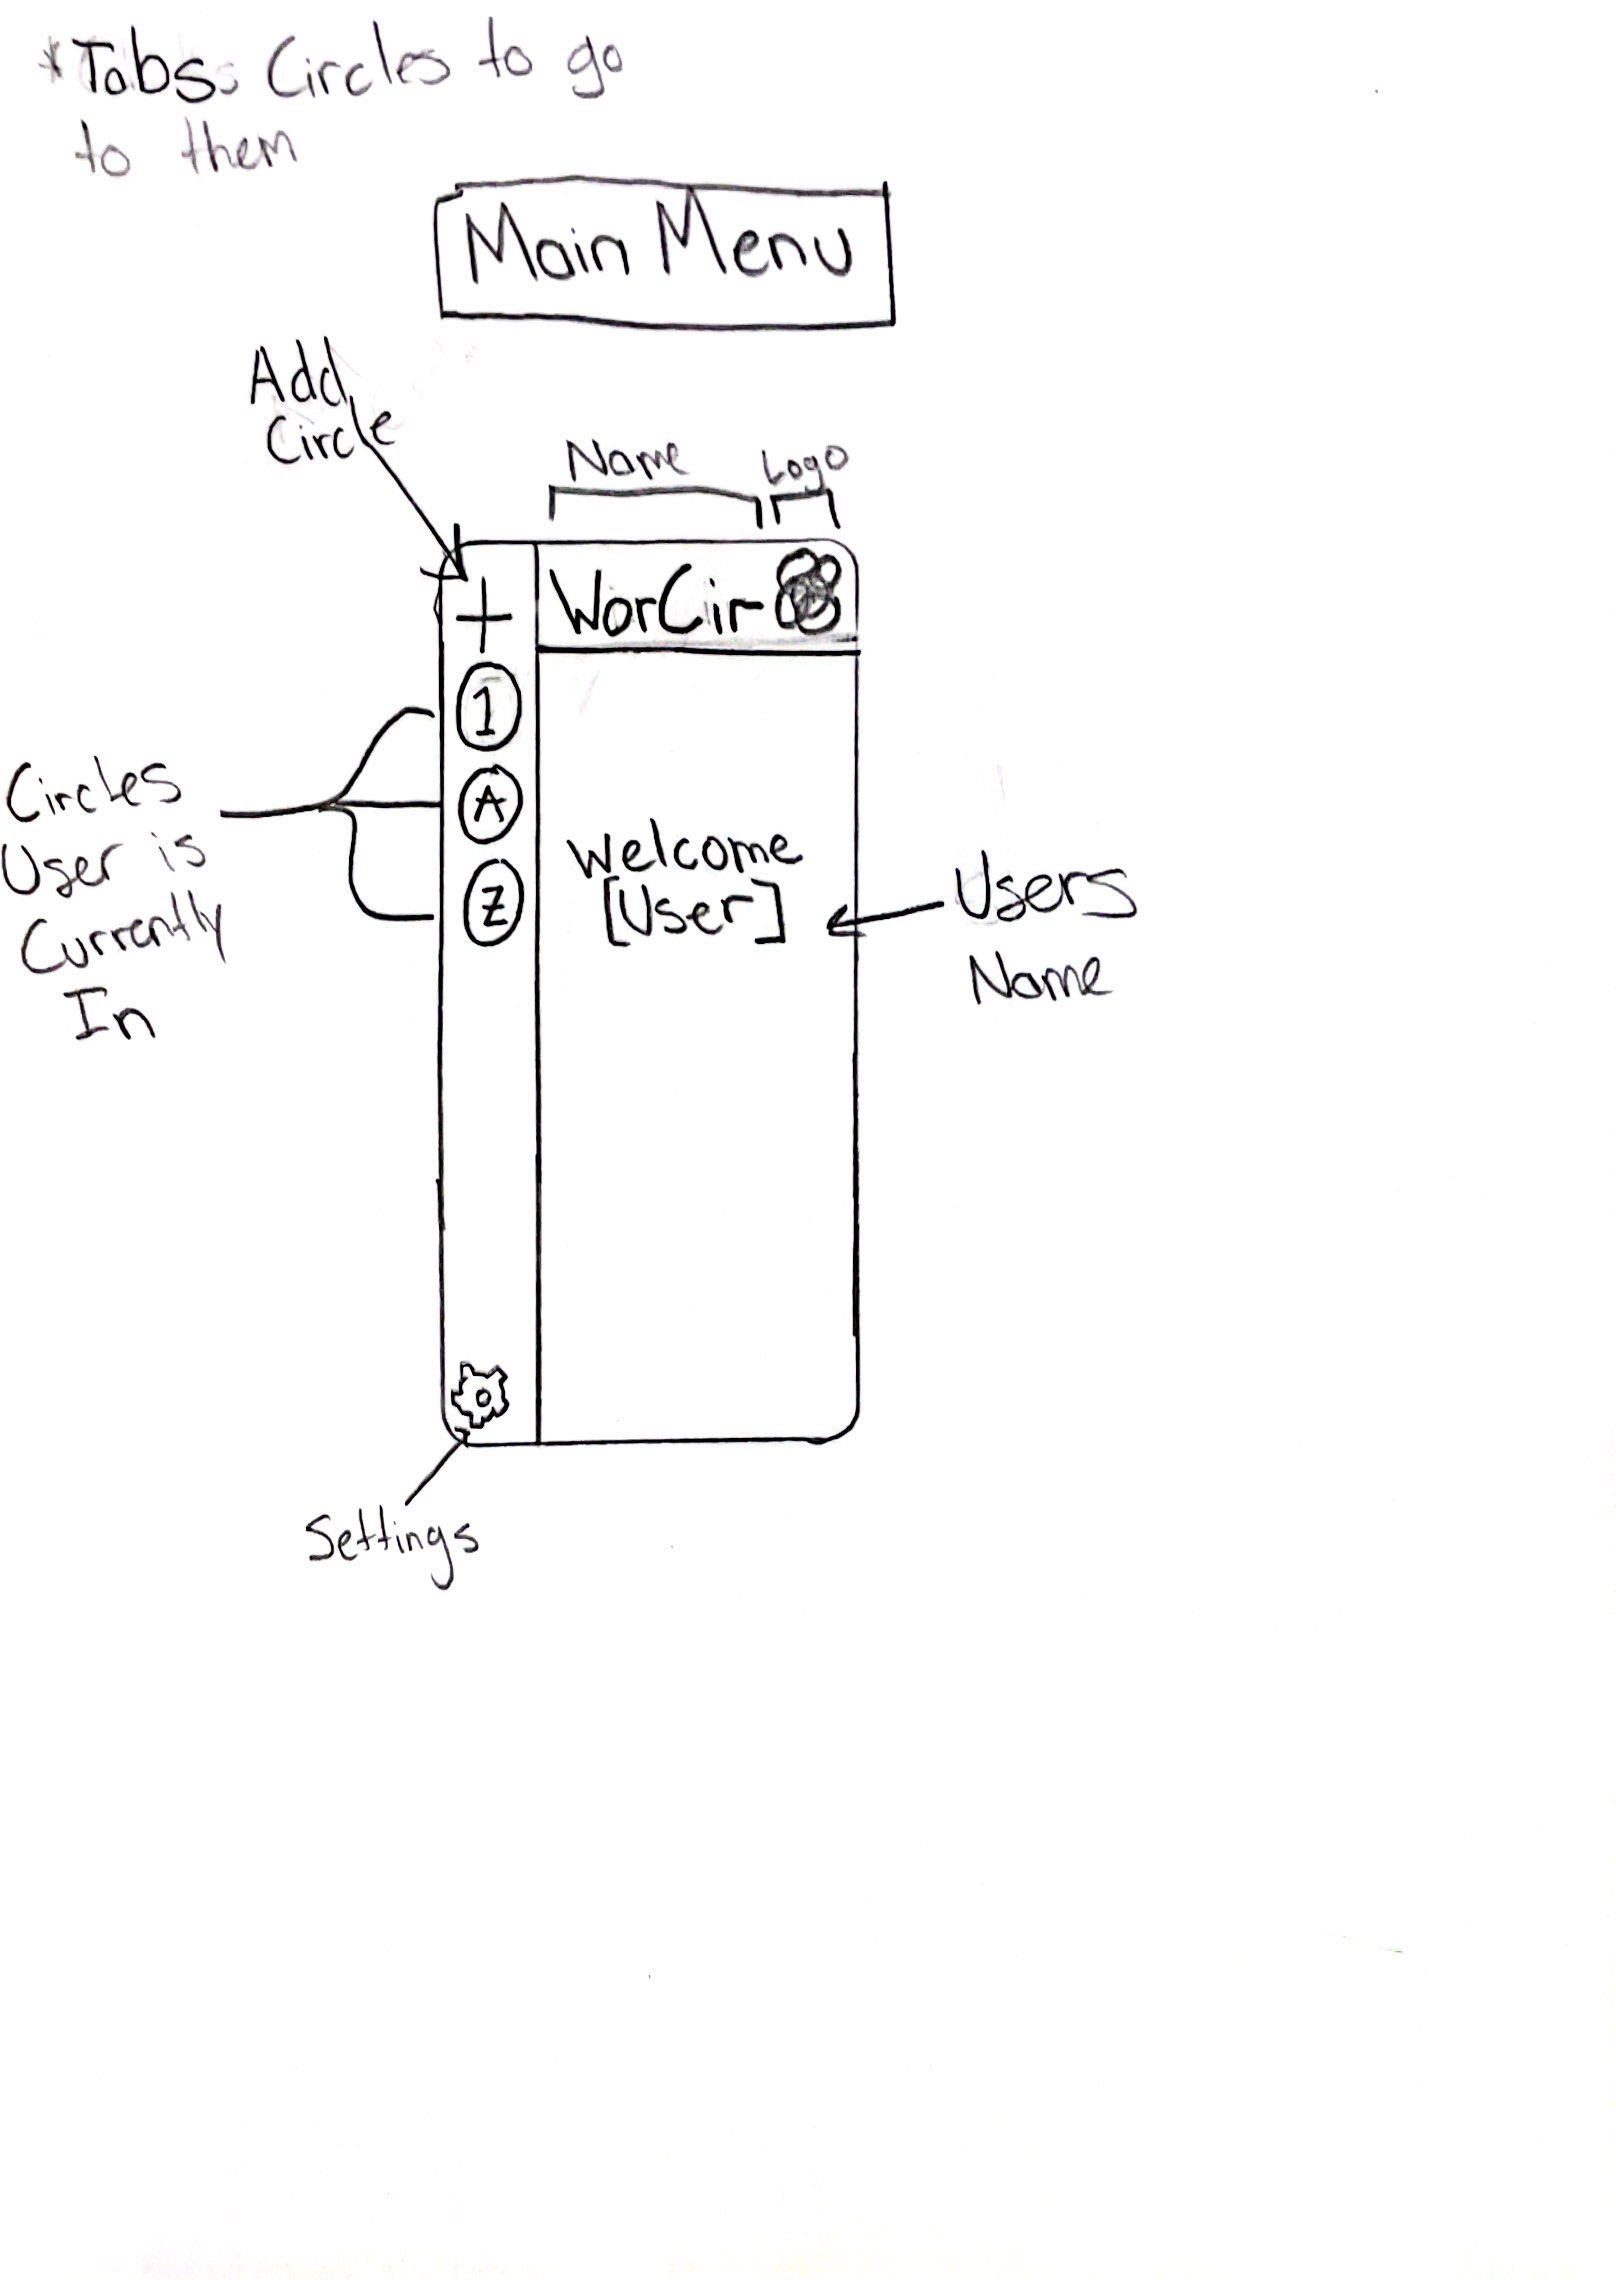 *Tabs: Circles to go
to them
Main Menu
Add
Circle
Name
Logo
+
WorCir
1
A
Z
Circles
User is
Currently
In
Welcome
[User]
Users
Name
Settings